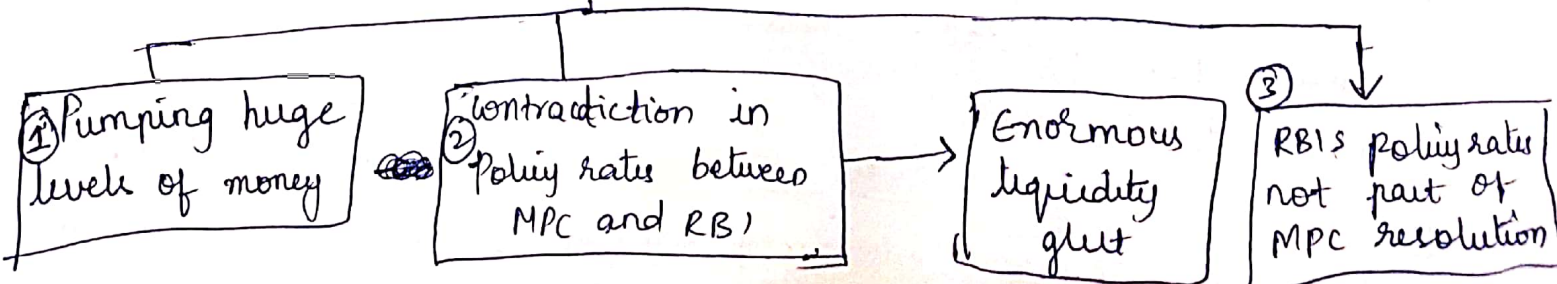 1 Pumping huge
levels of money
2 Contradiction in
Policy rates between
MPC and RBI
Enormous
liquidity
glut
3
RBIS policy rates
not part of
MPC resolution